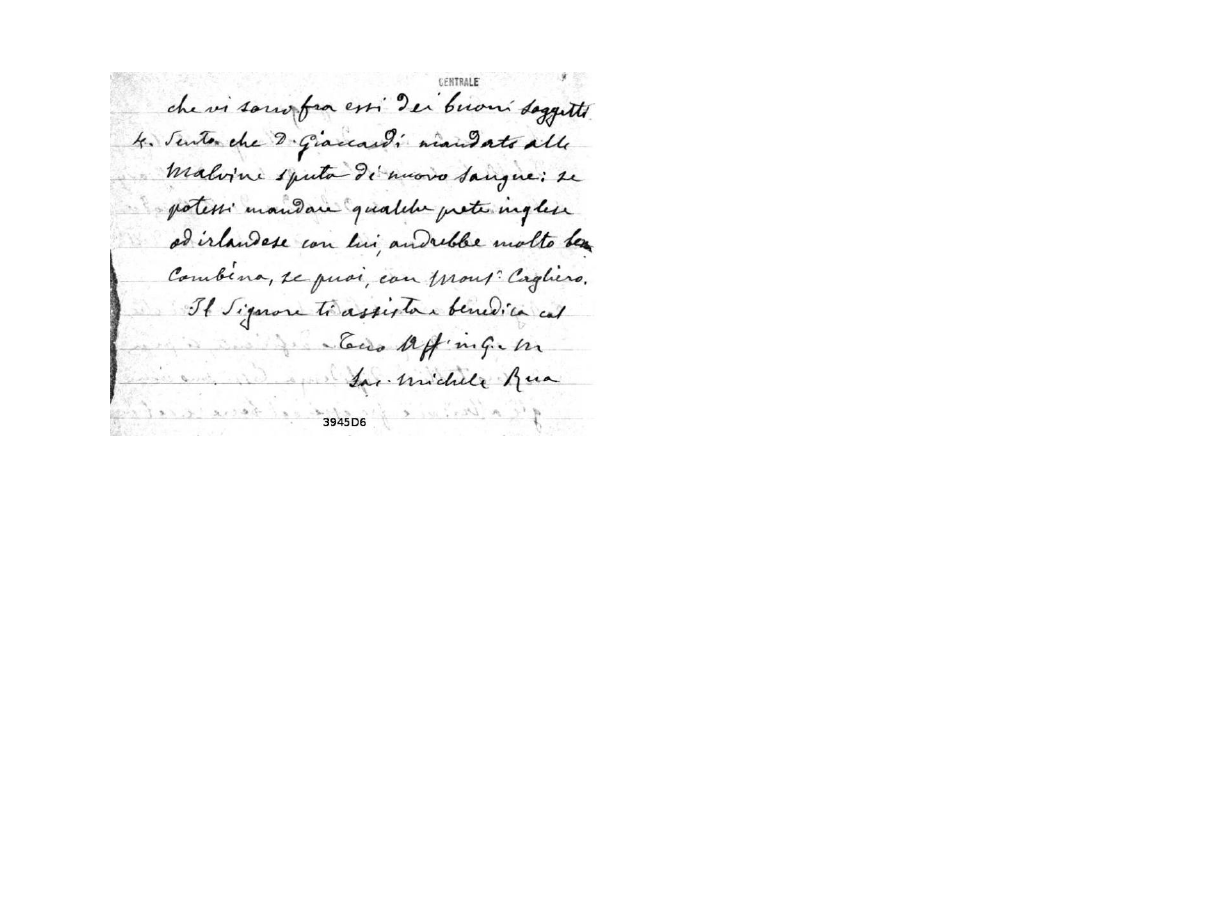 CENTRALE
che vi sono fra essi dei buoni soggetti
4. Sento che D. Giaccardi mandato alle
Malvine sputa di nuovo sangue: se
potessi mandare qualche prete inglese
od irlandese con lui, andrebbe molto ben
Combina, se puoi, con Mons.r Cagliero.
Il Signore ti assista e benedica col
Tuo Aff. in G. e M
Sac. Michele Rua
3945D6